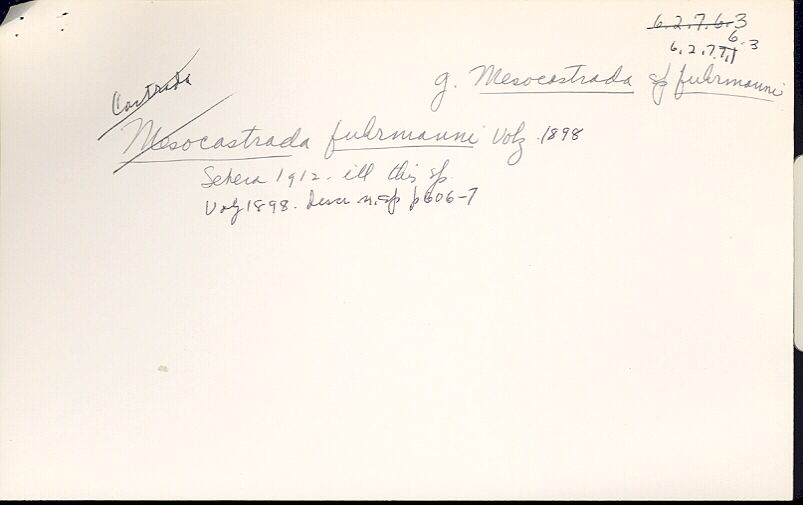 6.2.7.6.3
6
6.2.7.7.1.3
g. Mesocastrada sp fuhrmanni
Castrada
Mesocastrada fuhrmanni Volz 1898
Sekera 1912. ill this sp.
Volz 1898. Descr n.sp p 606-7